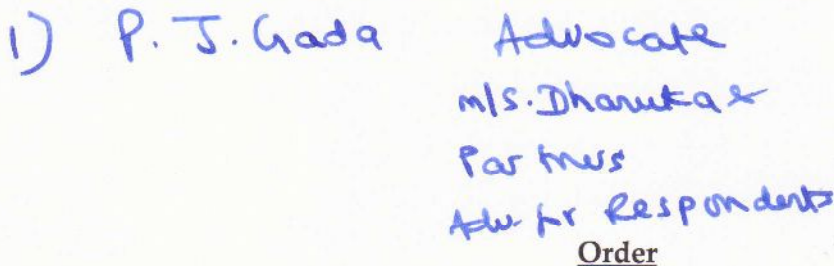 1) P. J. Gada Advocate
m/s. Dhanuka &
Partners
Adv. for Respondents
Order